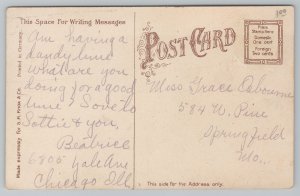 This Space For Writing Messages
Am having a
dandy time
what are you
doing for a good
time? Love to
Lottie & you,
Beatrice
6705 Yale Ave
Chicago Ill.
Printed in Germany.
Made expressly for
POST CARD
Place
Domestic
One cent
Foreign
Two cents
Miss Grace Osbourne
584 W. Pine
Springfield
Mo.
This side for the Address only.